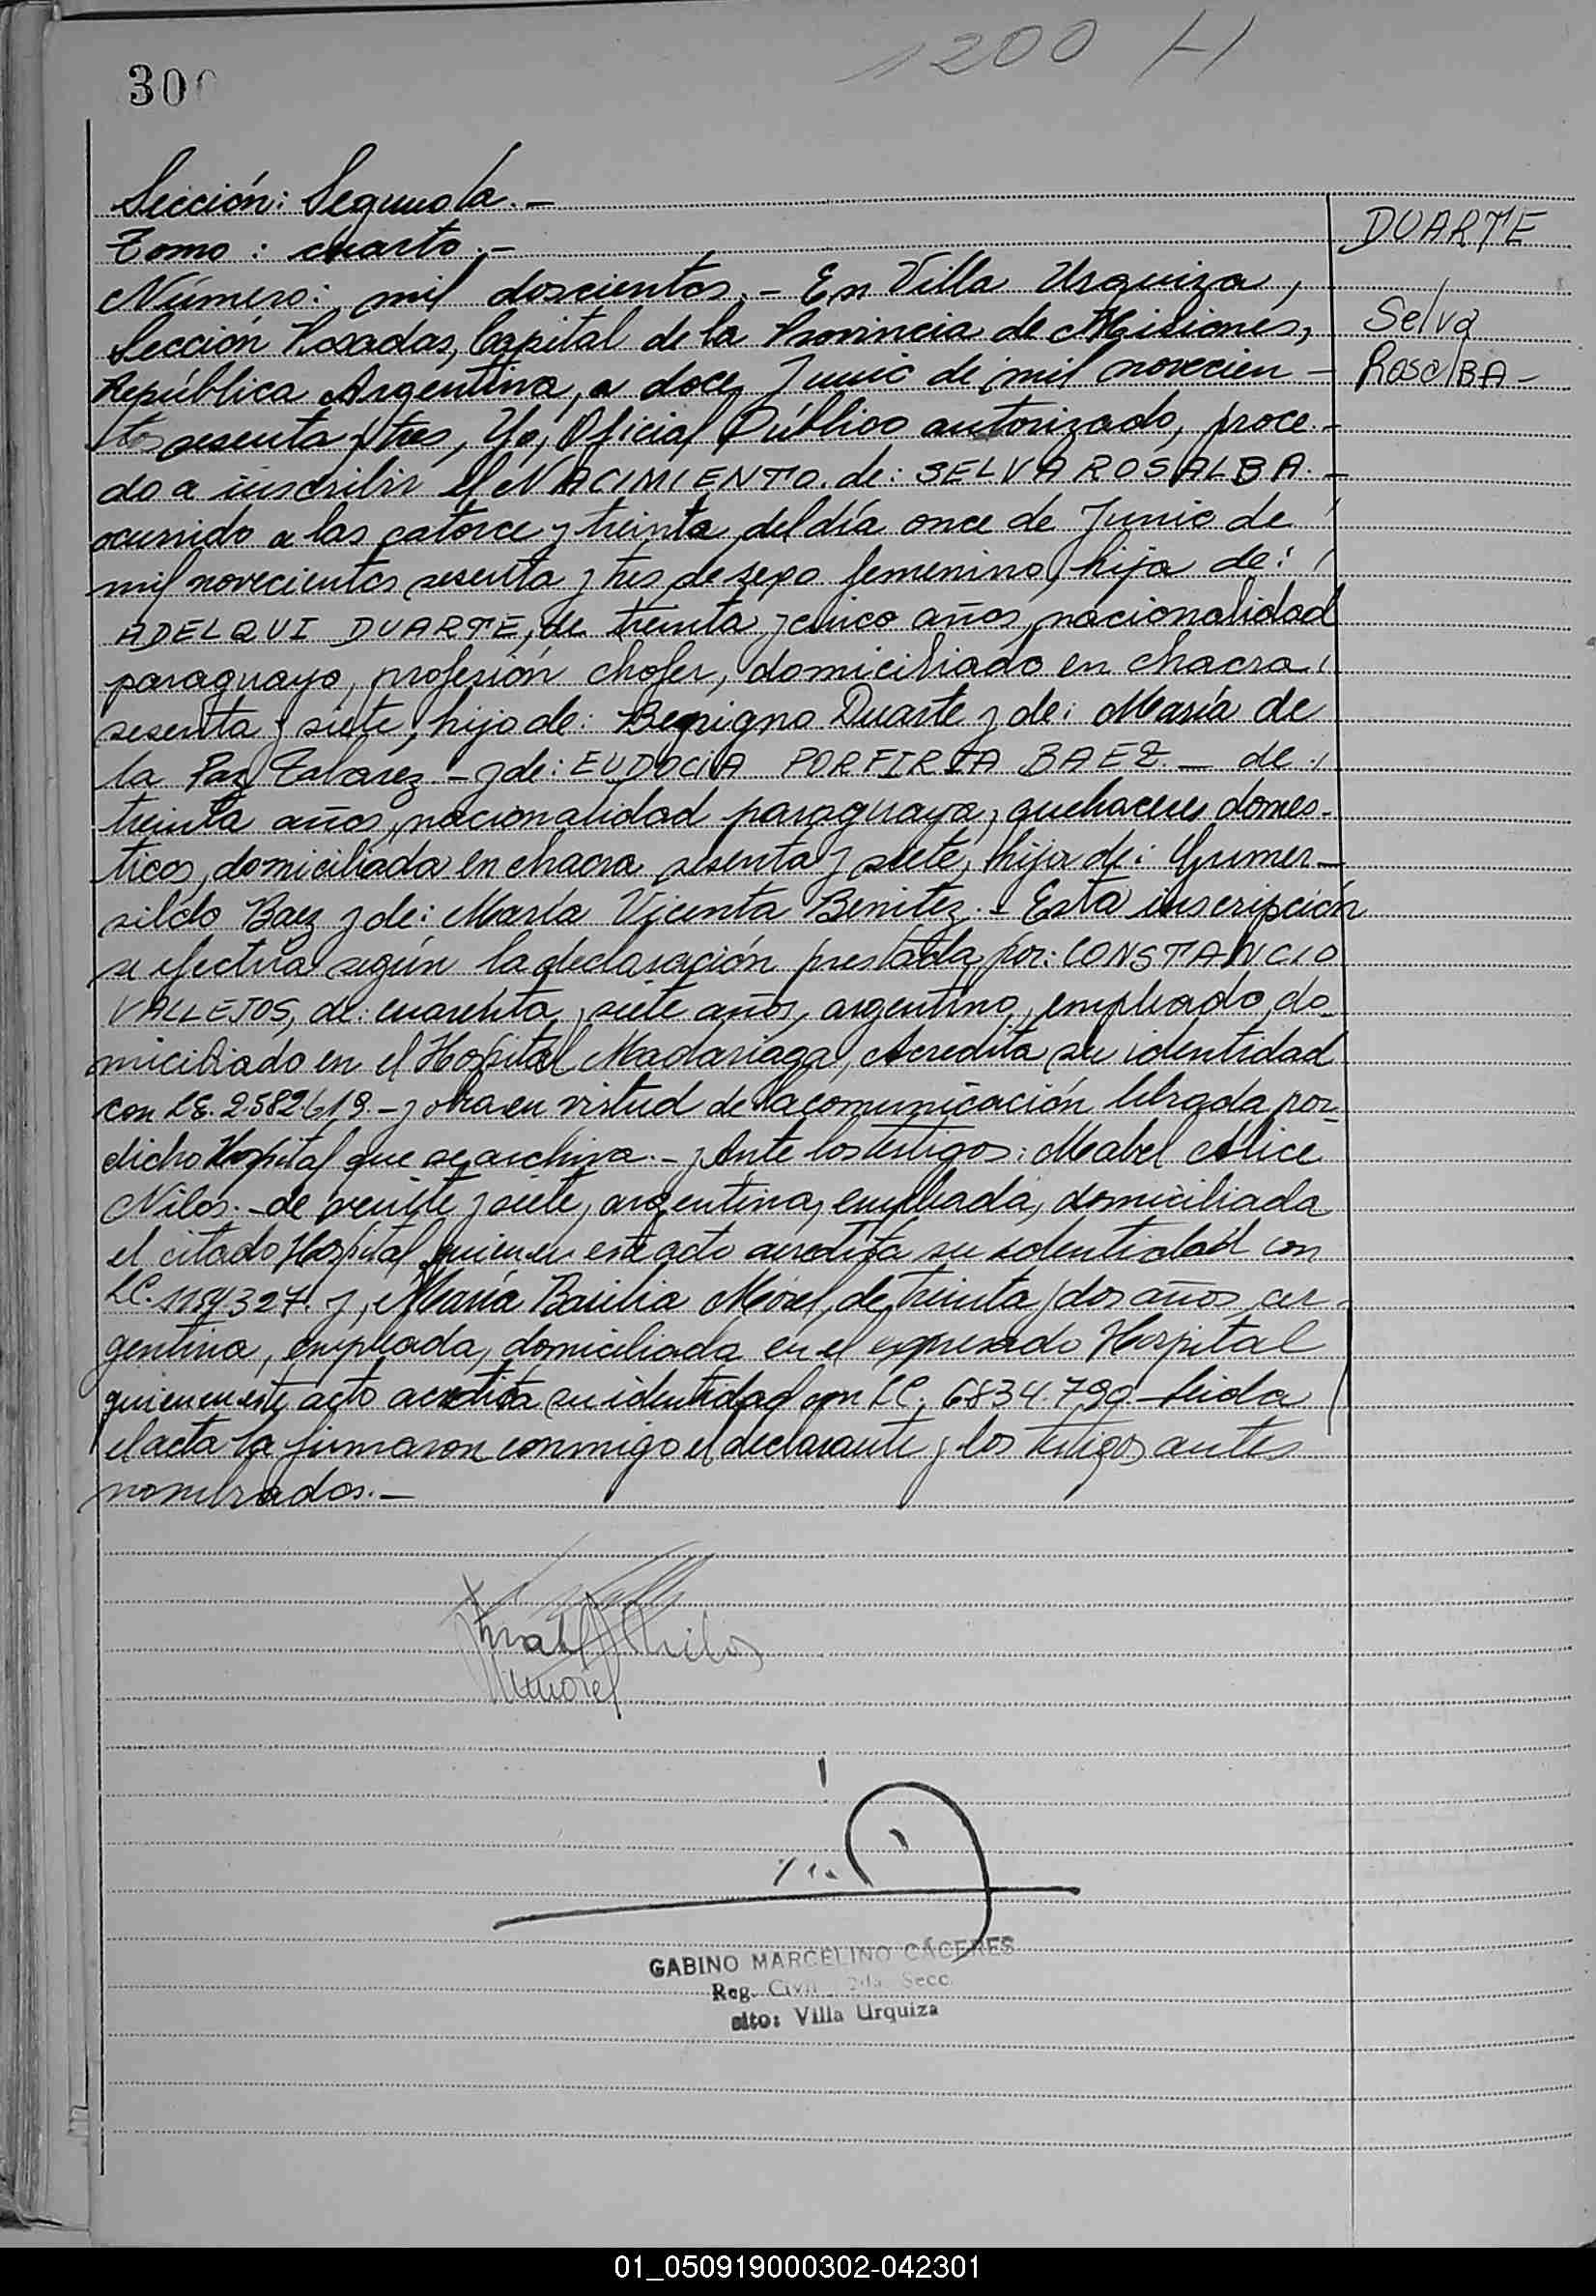 1200 H
300
Sección: Segunda.-
Tomo: cuarto.-
Número: mil doscientos.- En Villa Urquiza,
Sección Posadas, Capital de la Provincia de Misiones,
República Argentina, a doce Junio de mil novecien-
tos sesenta y tres, Yo, Oficial Público autorizado, proce-
do a inscribir el NACIMIENTO de: SELVA ROSALBA.-
ocurrido a las catorce y treinta del día once de Junio de
mil novecientos sesenta y tres de sexo femenino, hija de:
ADELQUI DUARTE, de treinta y cinco años, nacionalidad
paraguayo, profesión chofer, domiciliado en chacra
sesenta y siete, hijo de: Benigno Duarte y de: María de
la Paz Talavez - y de: EUDOCIA PORFIRIA BAEZ - de
treinta años, nacionalidad paraguaya, quehaceres domes-
ticos, domiciliada en chacra sesenta y siete, hija de: Gumer-
sildo Baez y de: María Vicenta Benitez.- Esta inscripción
se efectúa según la declaración prestada por: CONSTANCIO
VALLEJOS, de: cuarenta y siete años, argentino, empleado, do-
miciliado en el Hospital Madariaga, Acredita su identidad
con LE. 2.582.619.- y obra en virtud de la comunicación librada por
dicho Hospital que se archiva.- y Ante los testigos: Mabel Alice
Nilos.- de veinte y siete, argentina, empleada, domiciliada
el citado Hospital quien en este acto acredita su identidad con
LC. 327. y, María Basilia Morel, de treinta y dos años, ar-
gentina, empleada, domiciliada en el expresado Hospital
quien en este acto acredita su identidad con LC. 6834.790.- Leida
el acta la firmaron conmigo el declarante y los testigos antes
nombrados.-
DUARTE
Selva
RosalBA-
GABINO MARCELINO CACERES
Reg. Civil 2da Secc.
Villa Urquiza
01_050919000302-042301